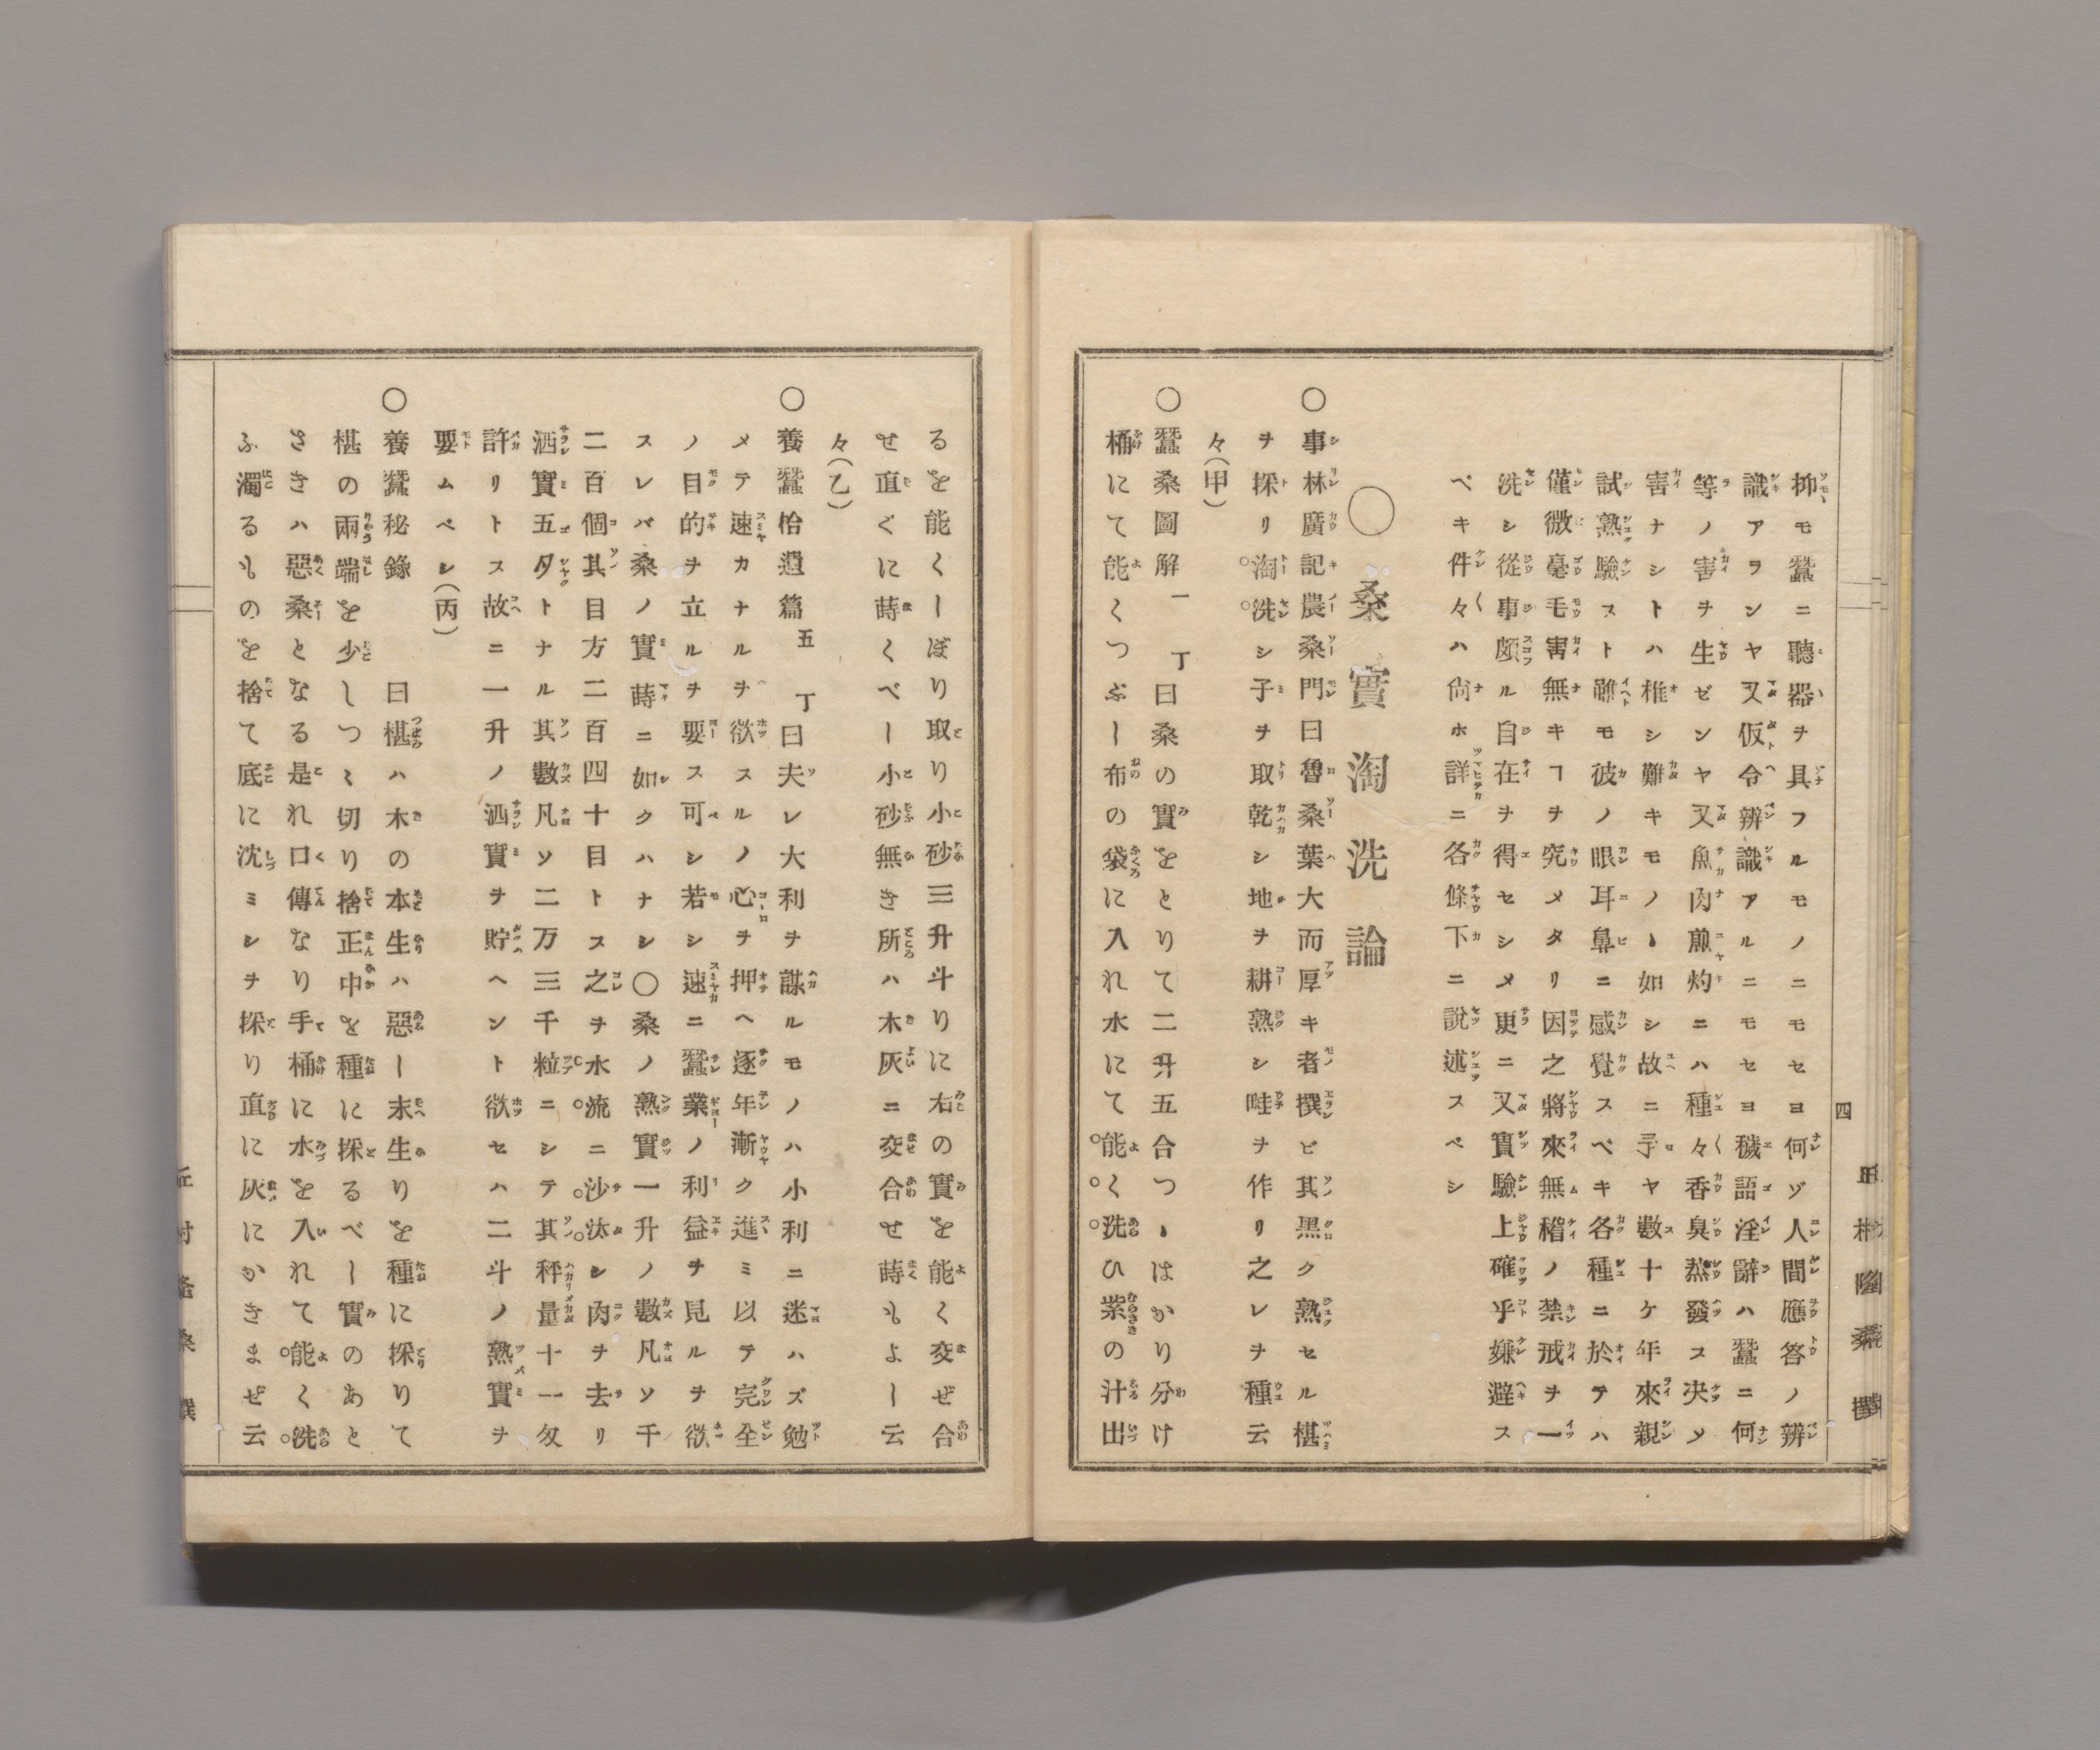 抑モ蠶ニ聽器ヲ具フルモノニモセヨ何ゾ人間應答ノ辨
識アヲンヤ又仮令辨識アルニモセヨ穢語淫辭ハ蠶ニ何
等ノ害ヲ生ゼンヤ又魚肉煎灼ニハ種々香臭蒸發ス决メ
害ナシトハ稚シ難キモノヽ如シ故ニ予ヤ數十ケ年來親
試熟驗スト雖モ彼ノ眼耳鼻ニ感覺スベキ各種ニ於テハ
僅微毫毛害無キヿヲ究メタリ因之將來無稽ノ禁戒ヲ一
洗シ從事頗ル自在ヲ得セシメ更ニ又實驗上確乎嫌避ス
ベキ件々ハ尙ホ詳ニ各條下ニ說述スベシ
〇桑實淘洗論
〇事林廣記農桑門曰魯桑葉大而厚キ者撰ビ其黒ク熟セル椹
ヲ採リ淘洗シ子ヲ取乾シ地ヲ耕熟シ畦ヲ作リ之レヲ種云
々(甲)
〇蠶桑圖解一丁曰桑の實をとりて二升五合つゝはかり分け
桶にて能くつぶし布の袋に入れ水にて能く洗ひ紫の汁出
四
るを能くしぼり取り小砂三升斗りに右の實を能く交ぜ合
せ直ぐに蒔くべし小砂無き所ハ木灰ニ交合せ蒔もよし云
々(乙)
〇養蠶拾遺篇五丁曰夫レ大利ヲ謀ルモノハ小利ニ迷ハズ勉
メテ速カナルヲ欲スルノ心ヲ押ヘ逐年漸ク進ミ以テ完全
ノ目的ヲ立ルヲ要ス可シ若シ速ニ蠶業ノ利益ヲ見ルヲ欲
スレバ桑ノ實蒔ニ如クハナシ〇桑ノ熟實一升ノ數凡ソ千
二百個其目方二百四十目トス之ヲ水流ニ沙汰シ肉ヲ去リ
洒實五夕トナル其數凡ソ二万三千粒ニシテ其秤量十一匁
許リトス故ニ一升ノ洒實ヲ貯ヘント欲セハ二斗ノ熟實ヲ
要ムベシ(丙)
〇養蠶秘錄　曰椹ハ木の本生ハ惡し末生りを種に採りて
椹の兩端を少しつゝ切り捨正中を種に採るべし實のあと
さきハ惡桑となる是れ口傳なり手桶に水を入れて能く洗
ふ濁るものを捨て底に沈ミシヲ採り直に灰にかきまぜ云